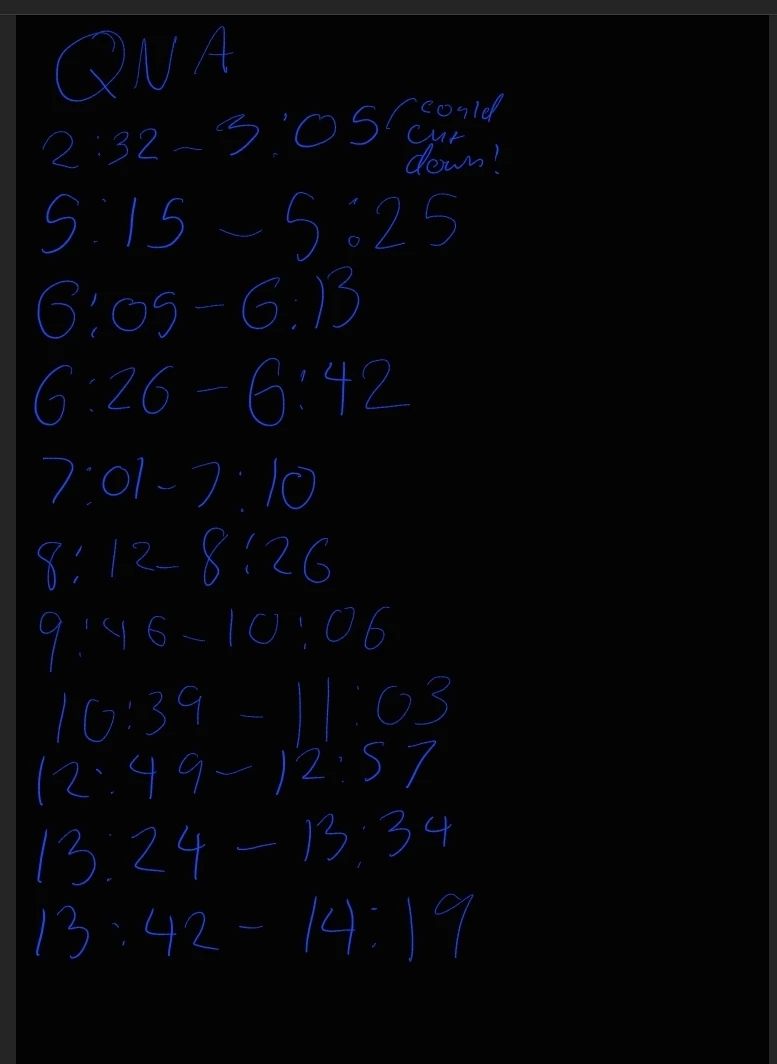 QNA
2:32 - 3:05 (could
cut
down!
5:15 - 5:25
6:05 - 6:13
6:26 - 6:42
7:01 - 7:10
8:12 - 8:26
9:46 - 10:06
10:39 - 11:03
12:49 - 12:57
13:24 - 13:34
13:42 - 14:19